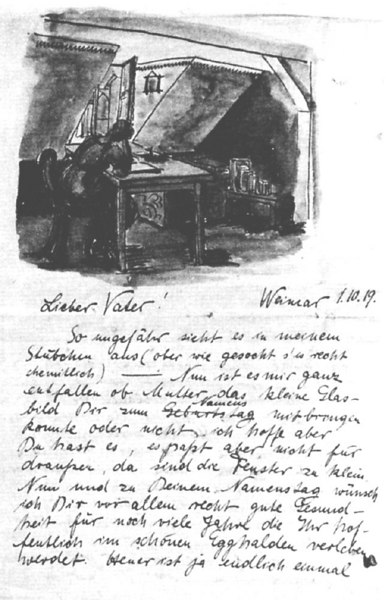 Lieber Vater! Weimar 1.10.19.
So ungefähr sieht es in meinem
Stübchen aus (aber wie gesagt s'is recht
) — Nun ist es mir ganz
entfallen ob Mutter das kleine Glas-
Namens
bild Dir zum Geburtstag mitbringen
konnte oder nicht, ich hoffe aber
Du hast es, es paßt aber nicht für
draußen, da sind die Fenster zu klein
Nun und zu Deinem Namenstag wünsch
ich Dir vor allem recht gute Gesund-
heit für noch viele Jahre die Ihr hof-
fentlich im schönen Egghalden verleben
werdet. Heuer ist ja endlich einmal